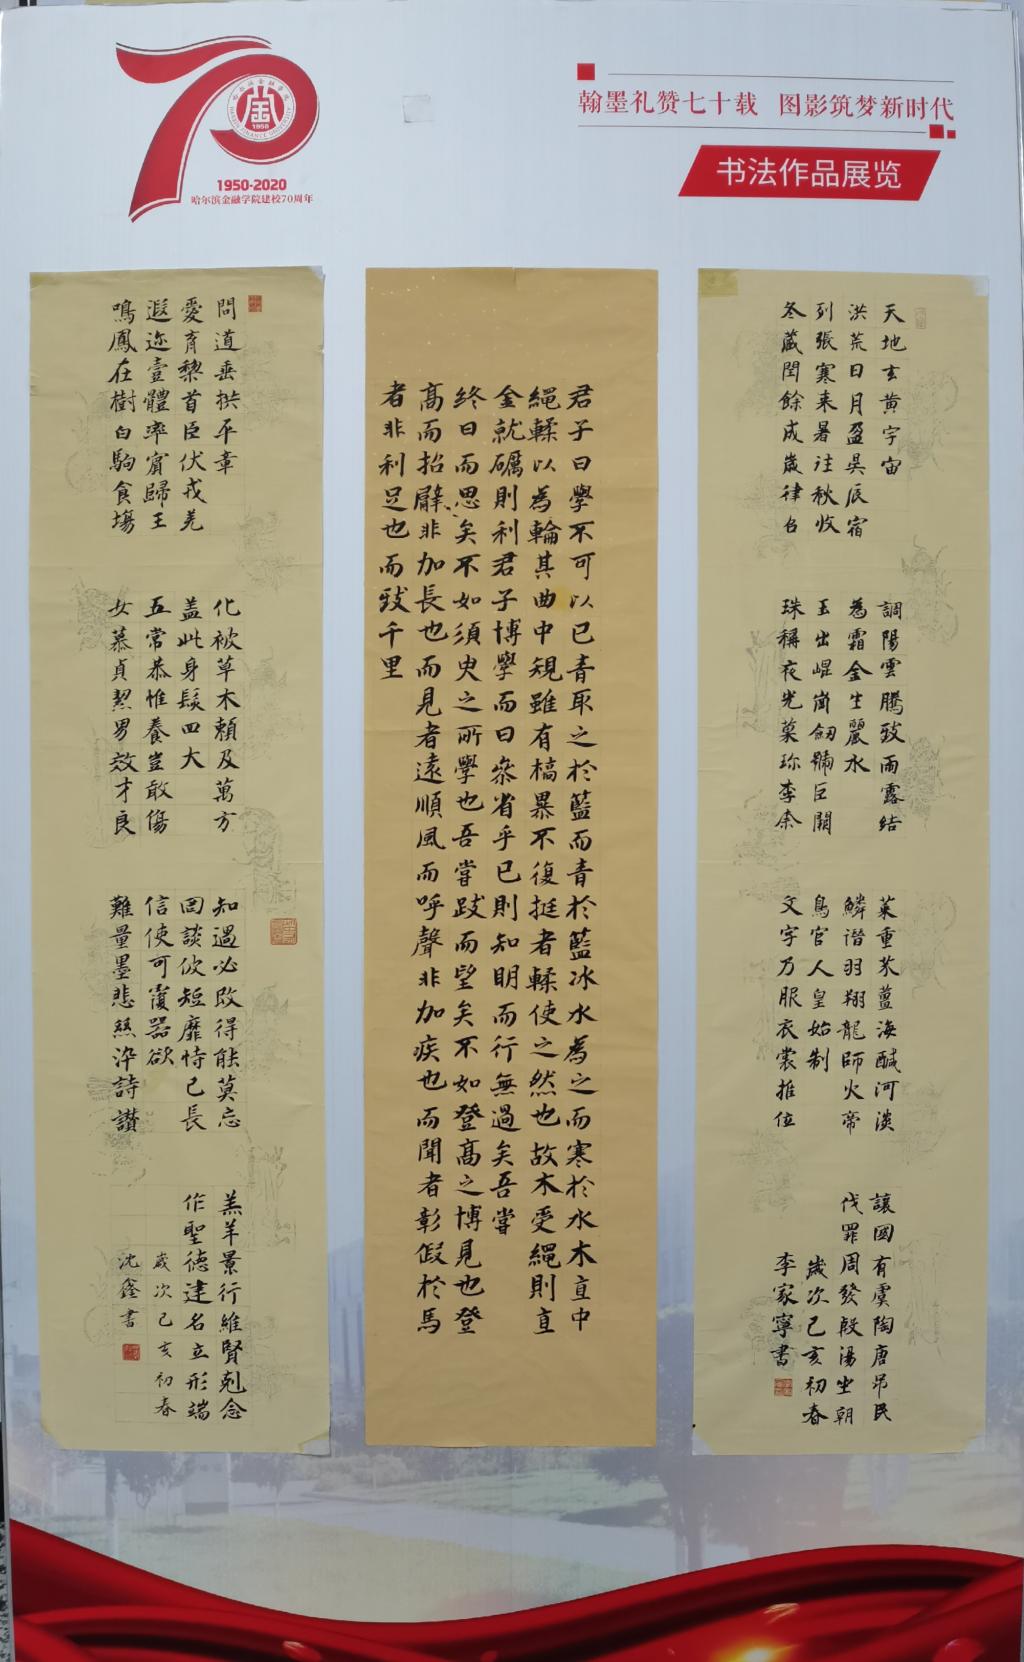 1950
1950-2020
哈尔滨金融学院建校70周年
翰墨礼赞七十载 图影筑梦新时代
书法作品展览
天地玄黄宇宙
洪荒日月盈昃辰宿
列張寒来暑往秋收
冬藏閏餘成歲律召
調陽雲騰致雨露結
為霜金生麗水
玉出崐崗劒號巨闕
珠稱夜光菓珎李柰
菜重芥薑海醎河淡
鱗潛羽翔龍師火帝
鳥官人皇始制
文字乃服衣裳推位
讓國有虞陶唐吊民
伐罪周發殷湯坐朝
歲次己亥初春
李家寧書
君子曰學不可以已青取之於藍而青於藍冰水為之而寒於水木直中
繩輮以為輪其曲中規雖有槁暴不復挺者輮使之然也故木受繩則直
金就礪則利君子博學而日叅省乎已則知明而行無過矣吾嘗
終日而思矣不如須臾之所學也吾嘗跂而望矣不如登高之博見也登
高而招臂非加長也而見者遠順風而呼聲非加疾也而聞者彰假於馬
者非利足也而致千里
問道垂拱平章
愛育黎首臣伏戎羌
遐迩壹體率賓歸王
鳴鳳在樹白駒食場
化被草木賴及萬方
盖此身髮四大
五常恭惟養豈敢傷
女慕貞絜男效才良
知過必改得能莫忘
罔談彼短靡恃己長
信使可覆器欲
難量墨悲絲淬詩讃
羔羊景行維賢剋念
作聖德建名立形端
歲次己亥初春
沈鑫書